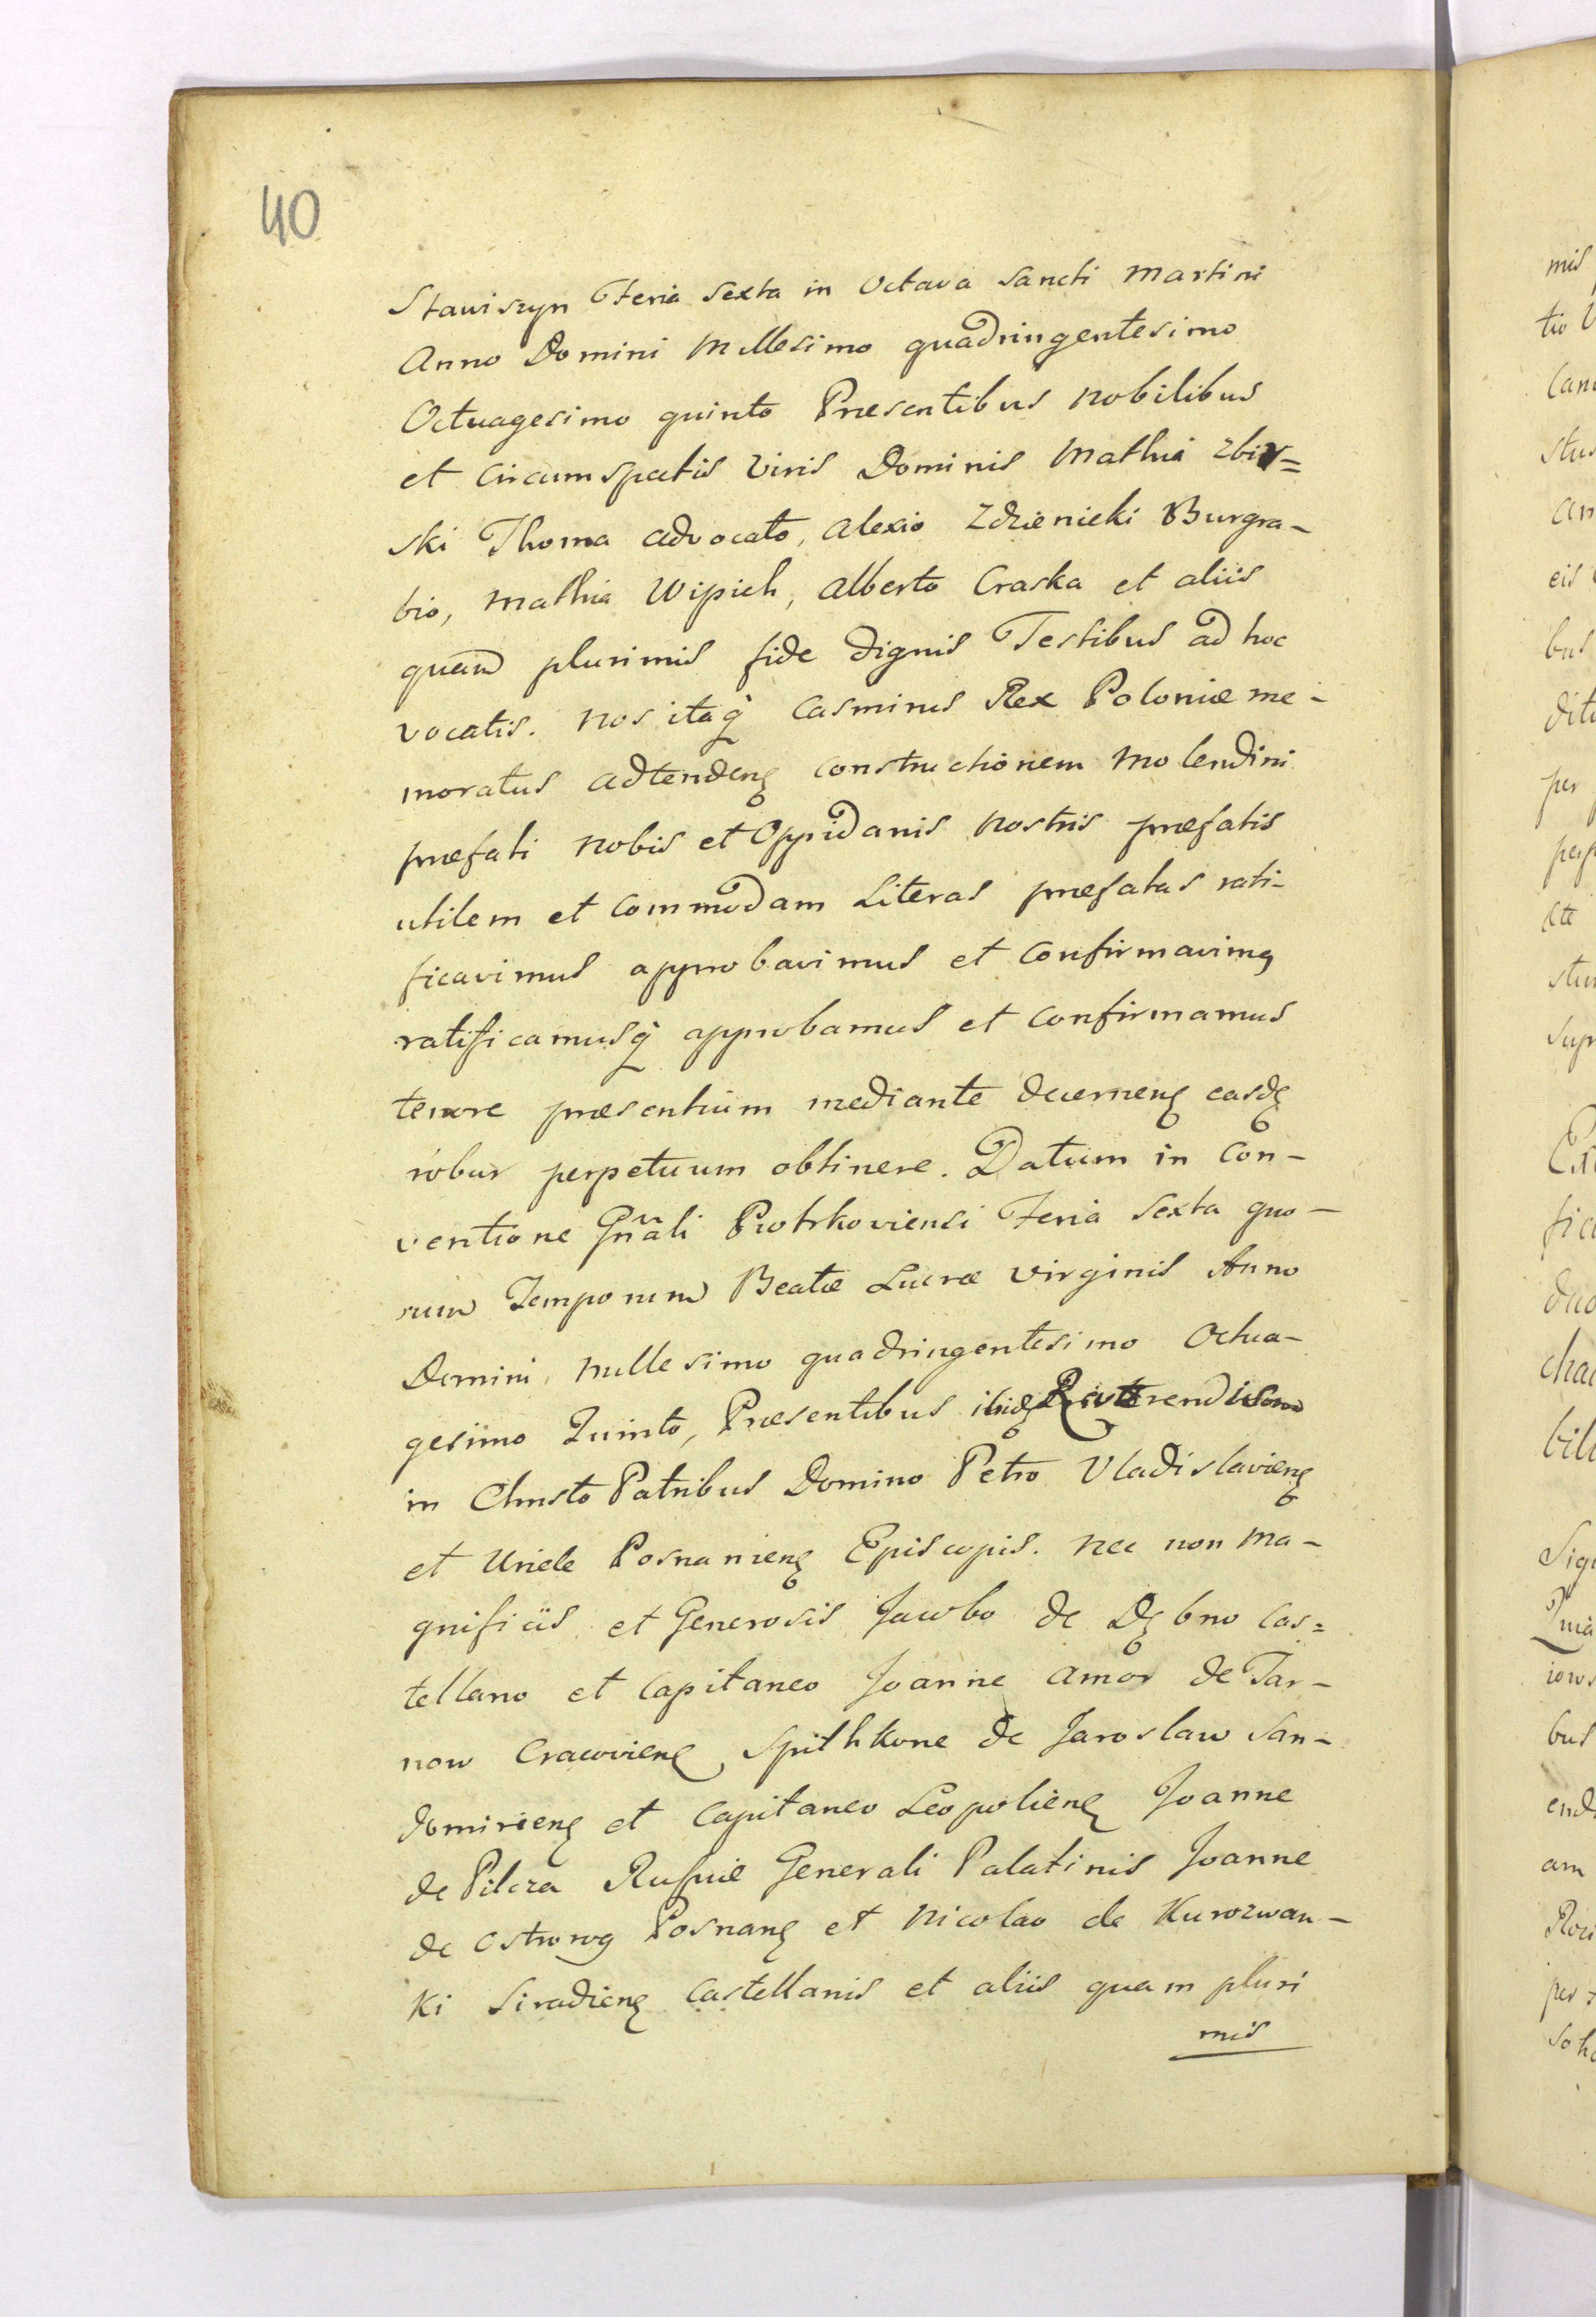 40
Stawiszyn Feria Sexta in Octava Sancti Martini
Anno Domini Millesimo quadringentesimo
Octuagesimo quinto Præsentibus Nobilibus
et Circumspectis Viris Dominis Mathia Zbir=
ski Thoma Advocato, Alexio Zdzienicki Burgra-
bio, Mathia Wipich, Alberto Craska et aliis
quam plurimis fide dignis Testibus ad hoc
vocatis. Nos itaq̀ Casmirus Rex Poloniæ me-
moratus adtendenę constructionem Molendini
præfati nobis et Oppidanis Nostris præfatis
utilem et Commodam Literas præfatas rati-
ficavimus approbavimus et Confirmavimę
ratificamusq̀ approbamus et confirmamus
tenore præsentium mediante decernenę easdę
robur perpetuum obtinere. Datum in Con-
ventione Gnãli Piotrkoviensi Feria Sexta quo-
rum Temporum Beatæ Luciæ Virginis Anno
Domini Millesimo quadringentesimo Octua-
gesimo Quinto, Præsentibus ibidę
in Christo Patribus Domino Petro Vladislavienę
et Uriele Posnanienę Episcopis. Nec non Ma-
gnificis et Generosis Jacobo de Dębno Cas=
tellano et Capitaneo Joanne Amor de Tar-
now Cracovienę, Spithkone de Jaroslaw San-
domirienę et Capitaneo Leopolienę Joanne
de Pilcza Rusſiæ Generali Palatinis Joanne
de Ostrorog Posnanę et Nicolao de Kurozwan-
ki Siradienę Castellanis et aliis quam pluri
mis